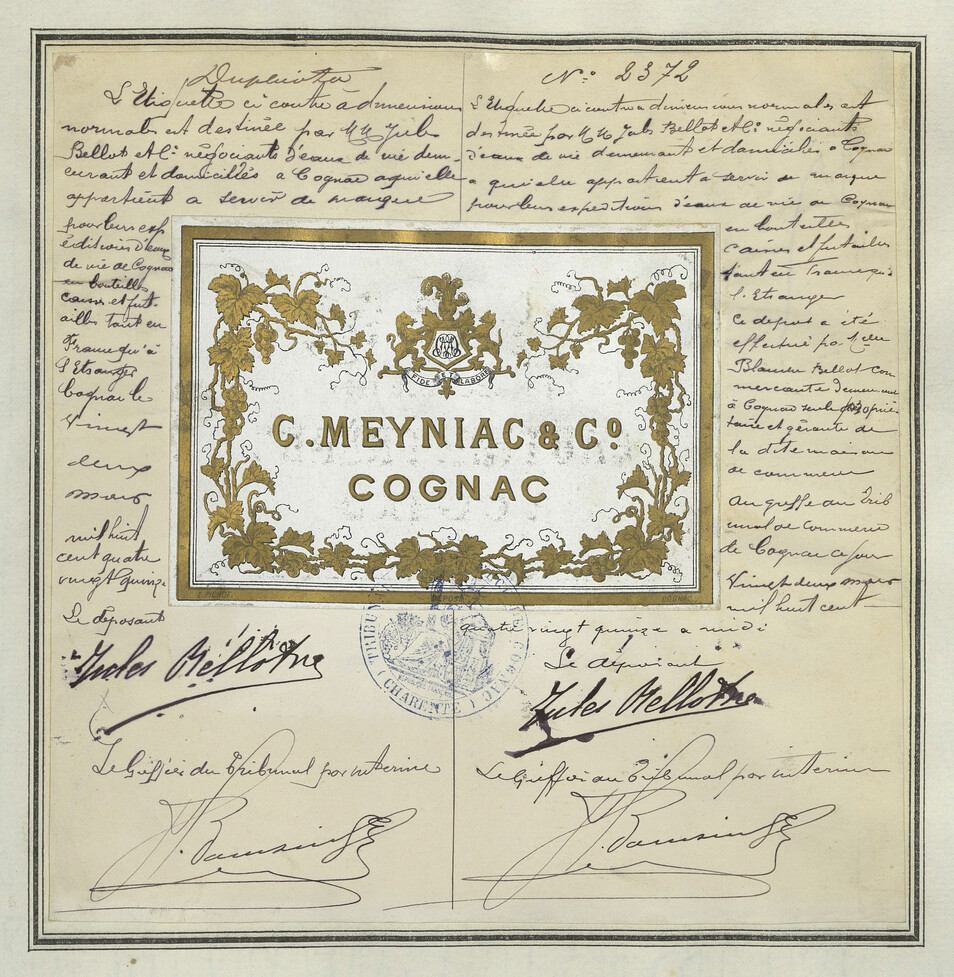 Duplicata
L'Etiquette ci contre à dimensions
normales est destinée par MM Jules
Bellot & Cie négociants d'eaux de vie dem-
eurant et domiciliés à Cognac a qui elle
appartient à servir de marque
pour leurs exp
éditions d'eaux
de vie de Cognac
en bouteilles
caisses et fut-
ailles tant en
France qu'à
l'Etranger
Cognac le
Vingt
deux
mars
mil huit
cent quatre
vingt quinze
Le déposant
Jules Bellot
Le Greffier du Tribunal par interim
N° 2372
L'Etiquette ci contre a dimensions normales est
destinée par MM Jules Bellot & Cie négociants
d'eaux de vie demeurant et domiciliés a Cognac
a qui elle appartient a servir de marque
pour leurs expeditions d'eaux de vie de Cognac
en bouteilles
caisses et futailles
tant en France qu'à
l'Etranger
Ce depot a été
effectué par
Blanche Bellot com
mercante demeurant
à Cognac seule proprié
taire et gérante de
la dite maison
de commerce
au greffe du Trib
unal de Commerce
de Cognac ce jour
Vingt deux mars
mil huit cent
quatre vingt quinze a midi
Le déposant
Jules Bellot
Le Greffier du Tribunal par interim
FIDE ET LABORE
C. MEYNIAC & Cº
COGNAC
DÉPOSÉ
COGNAC
TRIBUNAL DE COMMERCE DE COGNAC
(CHARENTE)